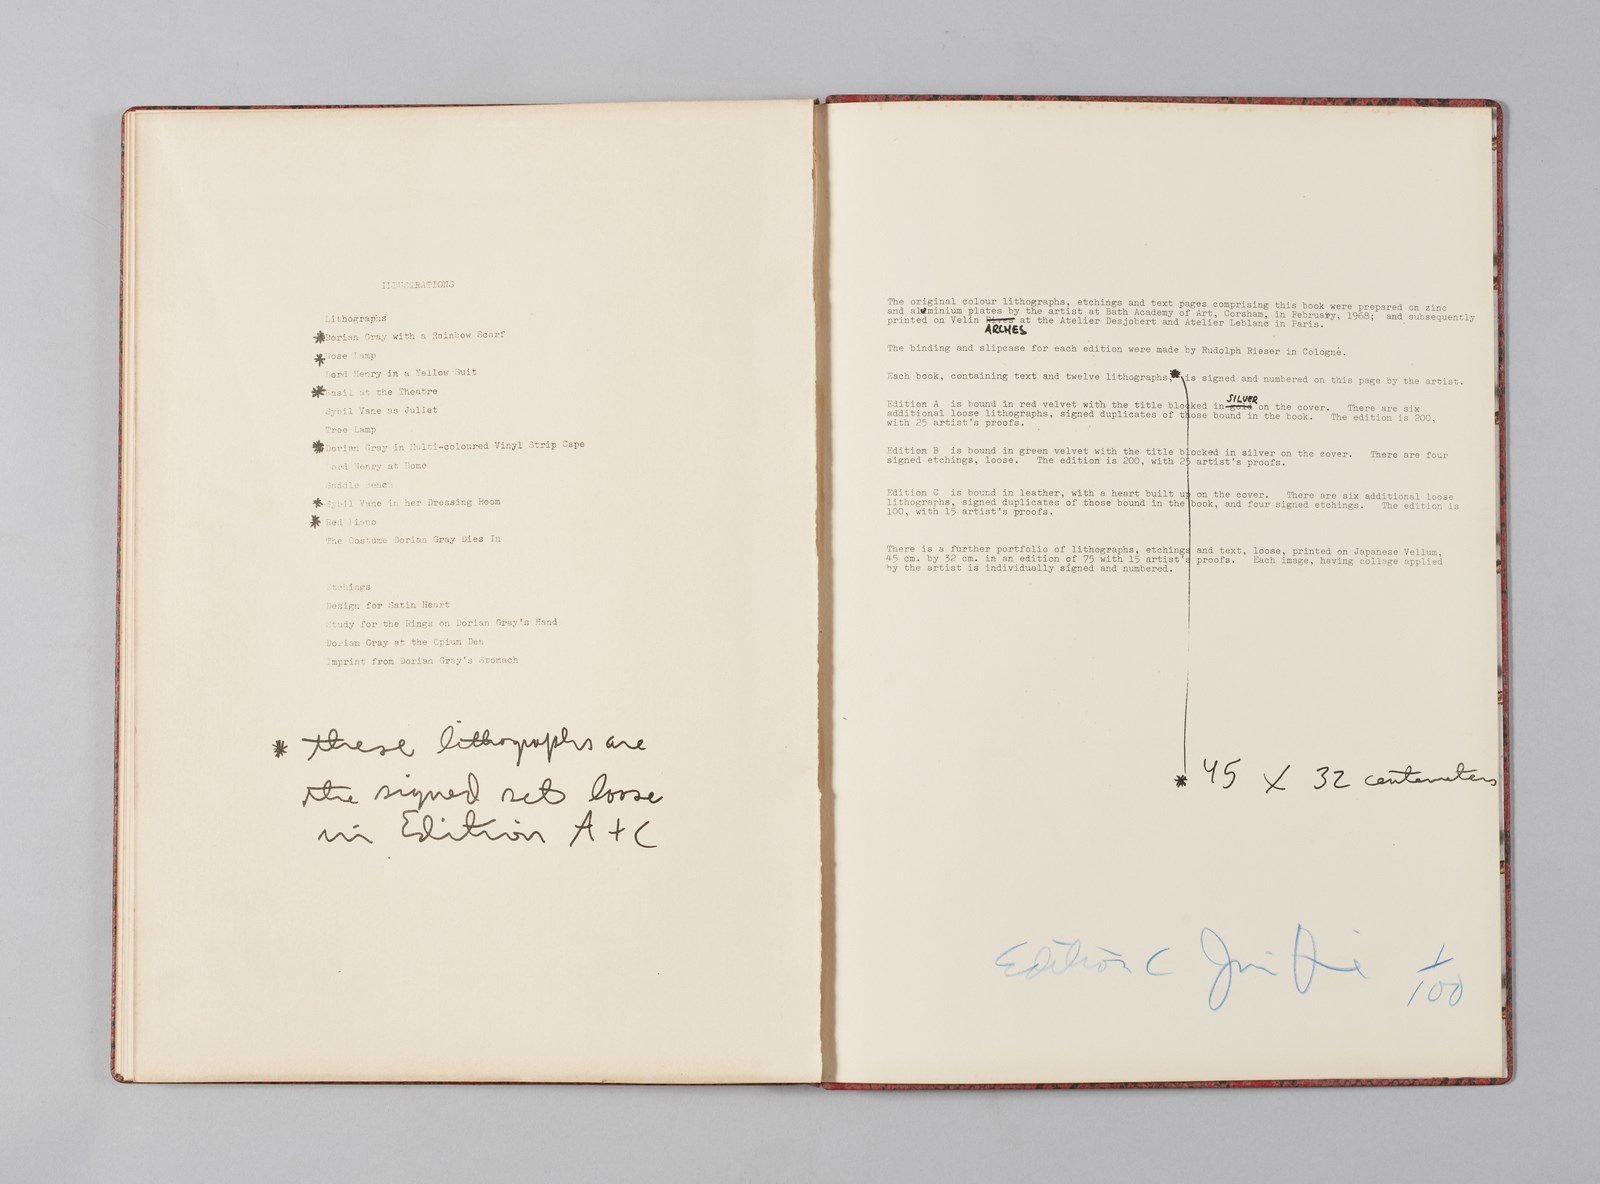 ILLUSTRATIONS
Lithographs
* Dorian Gray with a Rainbow Scarf
* Rose Lamp
Lord Henry in a Yellow Suit
* Basil at the Theatre
Sybil Vane as Juliet
Tree Lamp
* Dorian Gray in Multi-coloured Vinyl Strip Cape
Lord Henry at Home
Saddle Bench
* Sybil Vane in her Dressing Room
* Red Piano
The Costume Dorian Gray Dies In
Etchings
Design for Satin Heart
Study for the Rings on Dorian Gray's Hand
Dorian Gray at the Opium Den
Imprint from Dorian Gray's Stomach
* these lithographs are
the signed sets loose
in Edition A + C
The original colour lithographs, etchings and text pages comprising this book were prepared on zinc
and aluminium plates by the artist at Bath Academy of Art, Corsham, in February, 1968; and subsequently
printed on Velin Rives at the Atelier Desjobert and Atelier Leblanc in Paris.
ARCHES
The binding and slipcase for each edition were made by Rudolph Rieser in Cologne.
Each book, containing text and twelve lithographs,* is signed and numbered on this page by the artist.
SILVER
Edition A is bound in red velvet with the title blocked in gold on the cover. There are six
additional loose lithographs, signed duplicates of those bound in the book. The edition is 200,
with 25 artist's proofs.
Edition B is bound in green velvet with the title blocked in silver on the cover. There are four
signed etchings, loose. The edition is 200, with 25 artist's proofs.
Edition C is bound in leather, with a heart built up on the cover. There are six additional loose
lithographs, signed duplicates of those bound in the book, and four signed etchings. The edition is
100, with 15 artist's proofs.
There is a further portfolio of lithographs, etchings and text, loose, printed on Japanese Vellum,
45 cm. by 32 cm. in an edition of 75 with 15 artist's proofs. Each image, having collage applied
by the artist is individually signed and numbered.
* 45 X 32 centemeters
Edition C Jim Dine 1/100